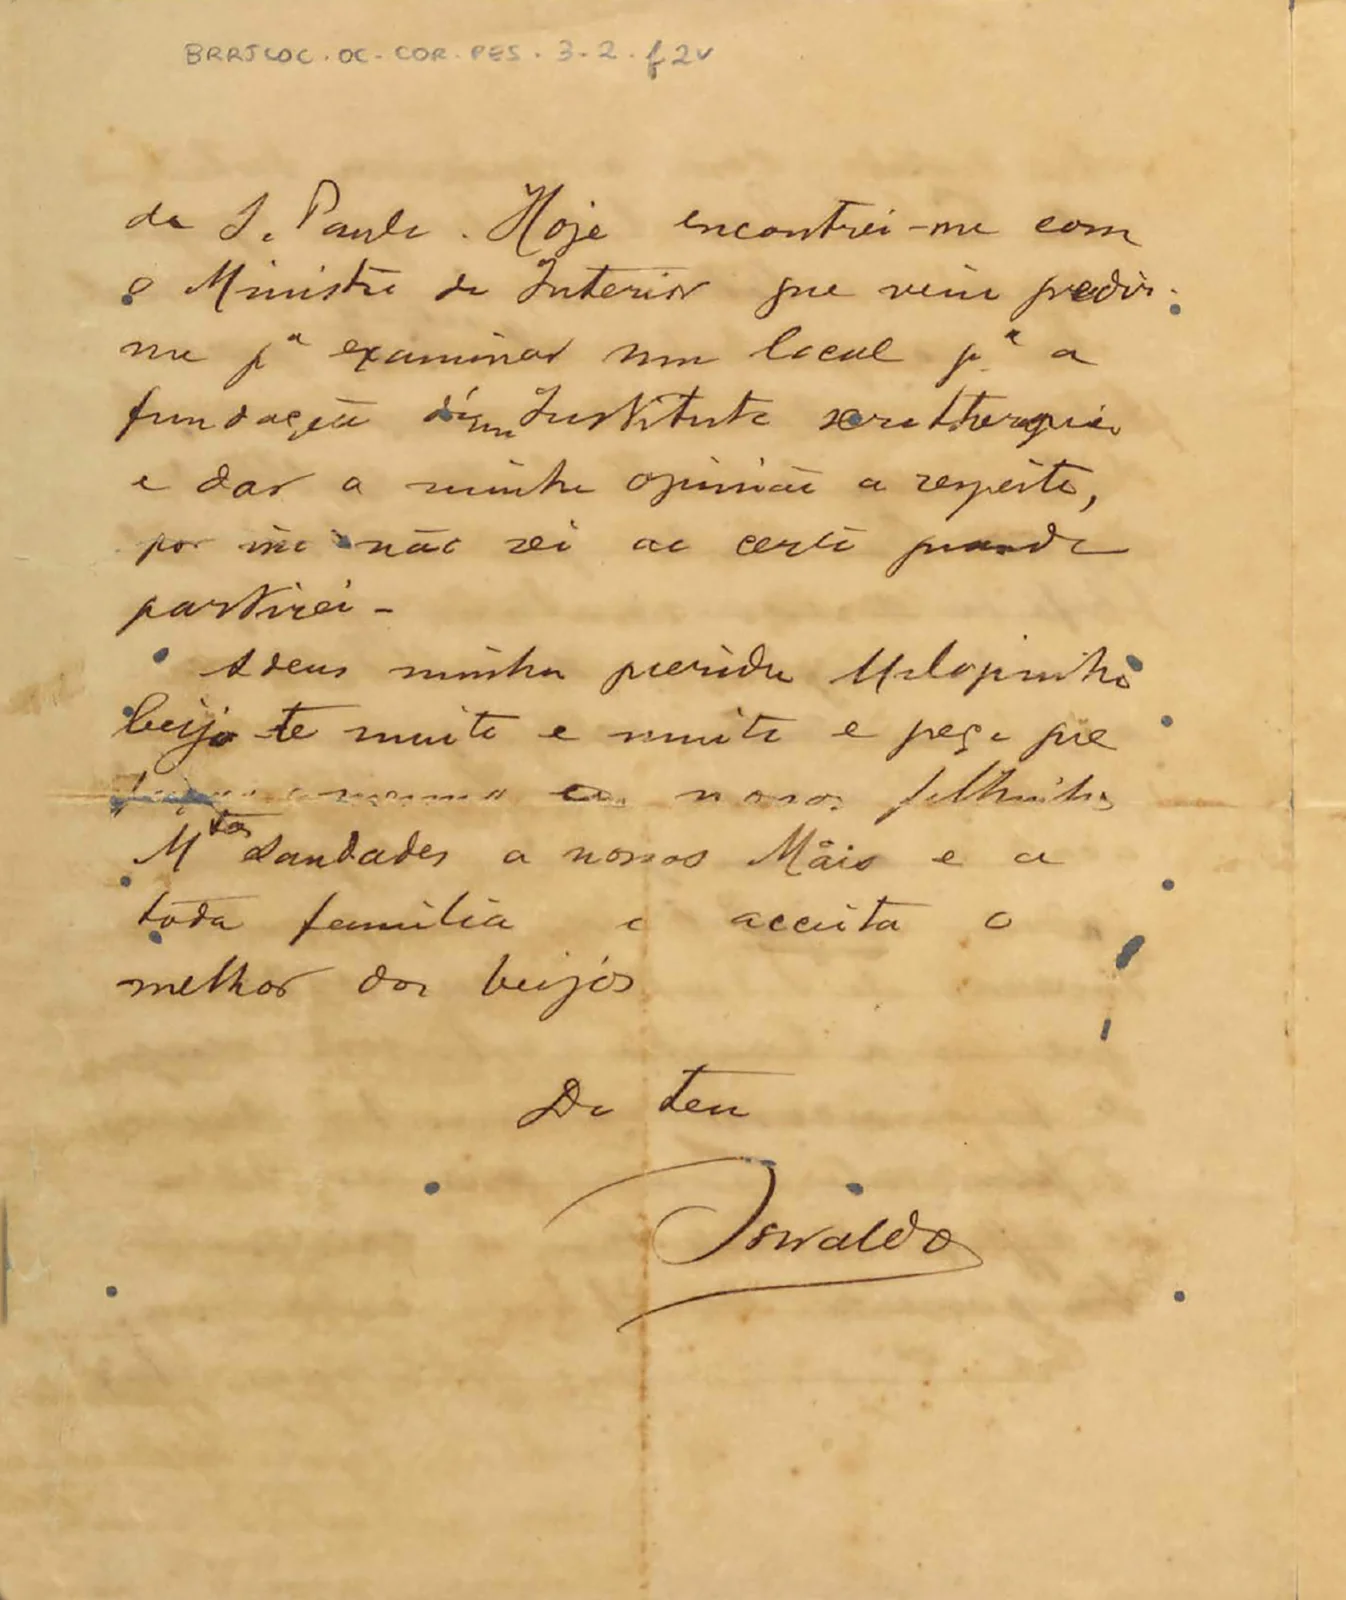 BRRJCOC.OC-COR.PES.3-2.f2v
de S. Paulo. Hoje encontrei-me com
o Ministro do Interior que veiu pedir-
me pª examinar um local pª a
fundação d'um Instituto serotherapico
e dar a minha opinião a respeito,
por isso não sei ao certo quando
partirei-
Adeus minha querida
beijo-te muito e muito e peço que
mesmo a nosos filhinhos
Mtas saudades a nossos Mãis e a
toda familia e acceita o
melhor dos beijos
Do teu
Oswaldo